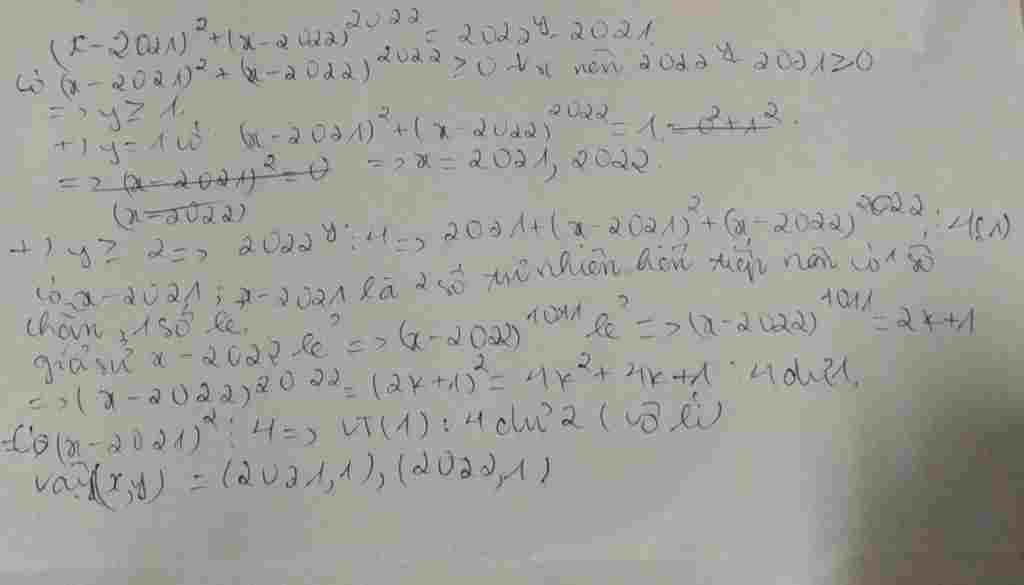 (x-2021)² + (x-2022)^2022 = 2022^y - 2021.
Có (x-2021)² + (x-2022)^2022 ≥ 0 ∀x nên 2022^y - 2021 ≥ 0
=> y ≥ 1.
+) y=1 có (x-2021)² + (x-2022)^2022 = 1. = 0²+1².
=> (x-2021)² = 0 => x = 2021, 2022.
(x-2022)
+) y ≥ 2 => 2022^y ⋮ 4 => 2021 + (x-2021)² + (x-2022)^2022 ⋮ 4 (1)
có x-2021; x-2021 là 2 số tự nhiên liên tiếp nên có 1 số
chẵn, 1 số lẻ.
giả sử x-2022 lẻ => (x-2022)^1011 lẻ => (x-2022)^1011 = 2k+1
=> (x-2022)^2022 = (2k+1)² = 4k² + 4k + 1 : 4 dư 1.
Có (x-2021)² ⋮ 4 => VT(1) : 4 dư 2 (vô lí)
vậy (x,y) = (2021,1), (2022,1)